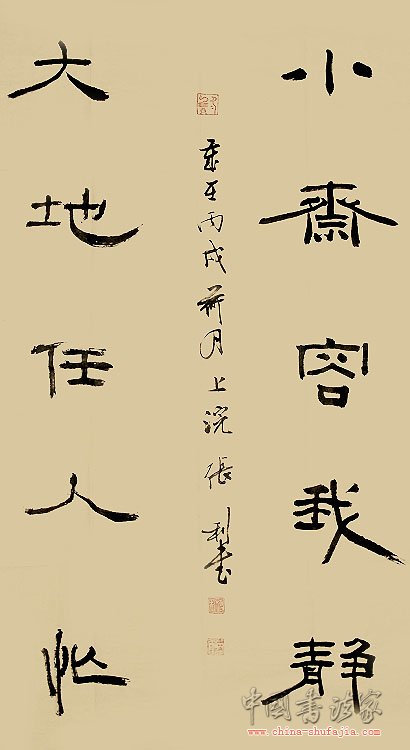 小齋容我靜
大地任人忙
歲在丙戌荷月上浣張利書
中国书法家
www.china-shufajia.com